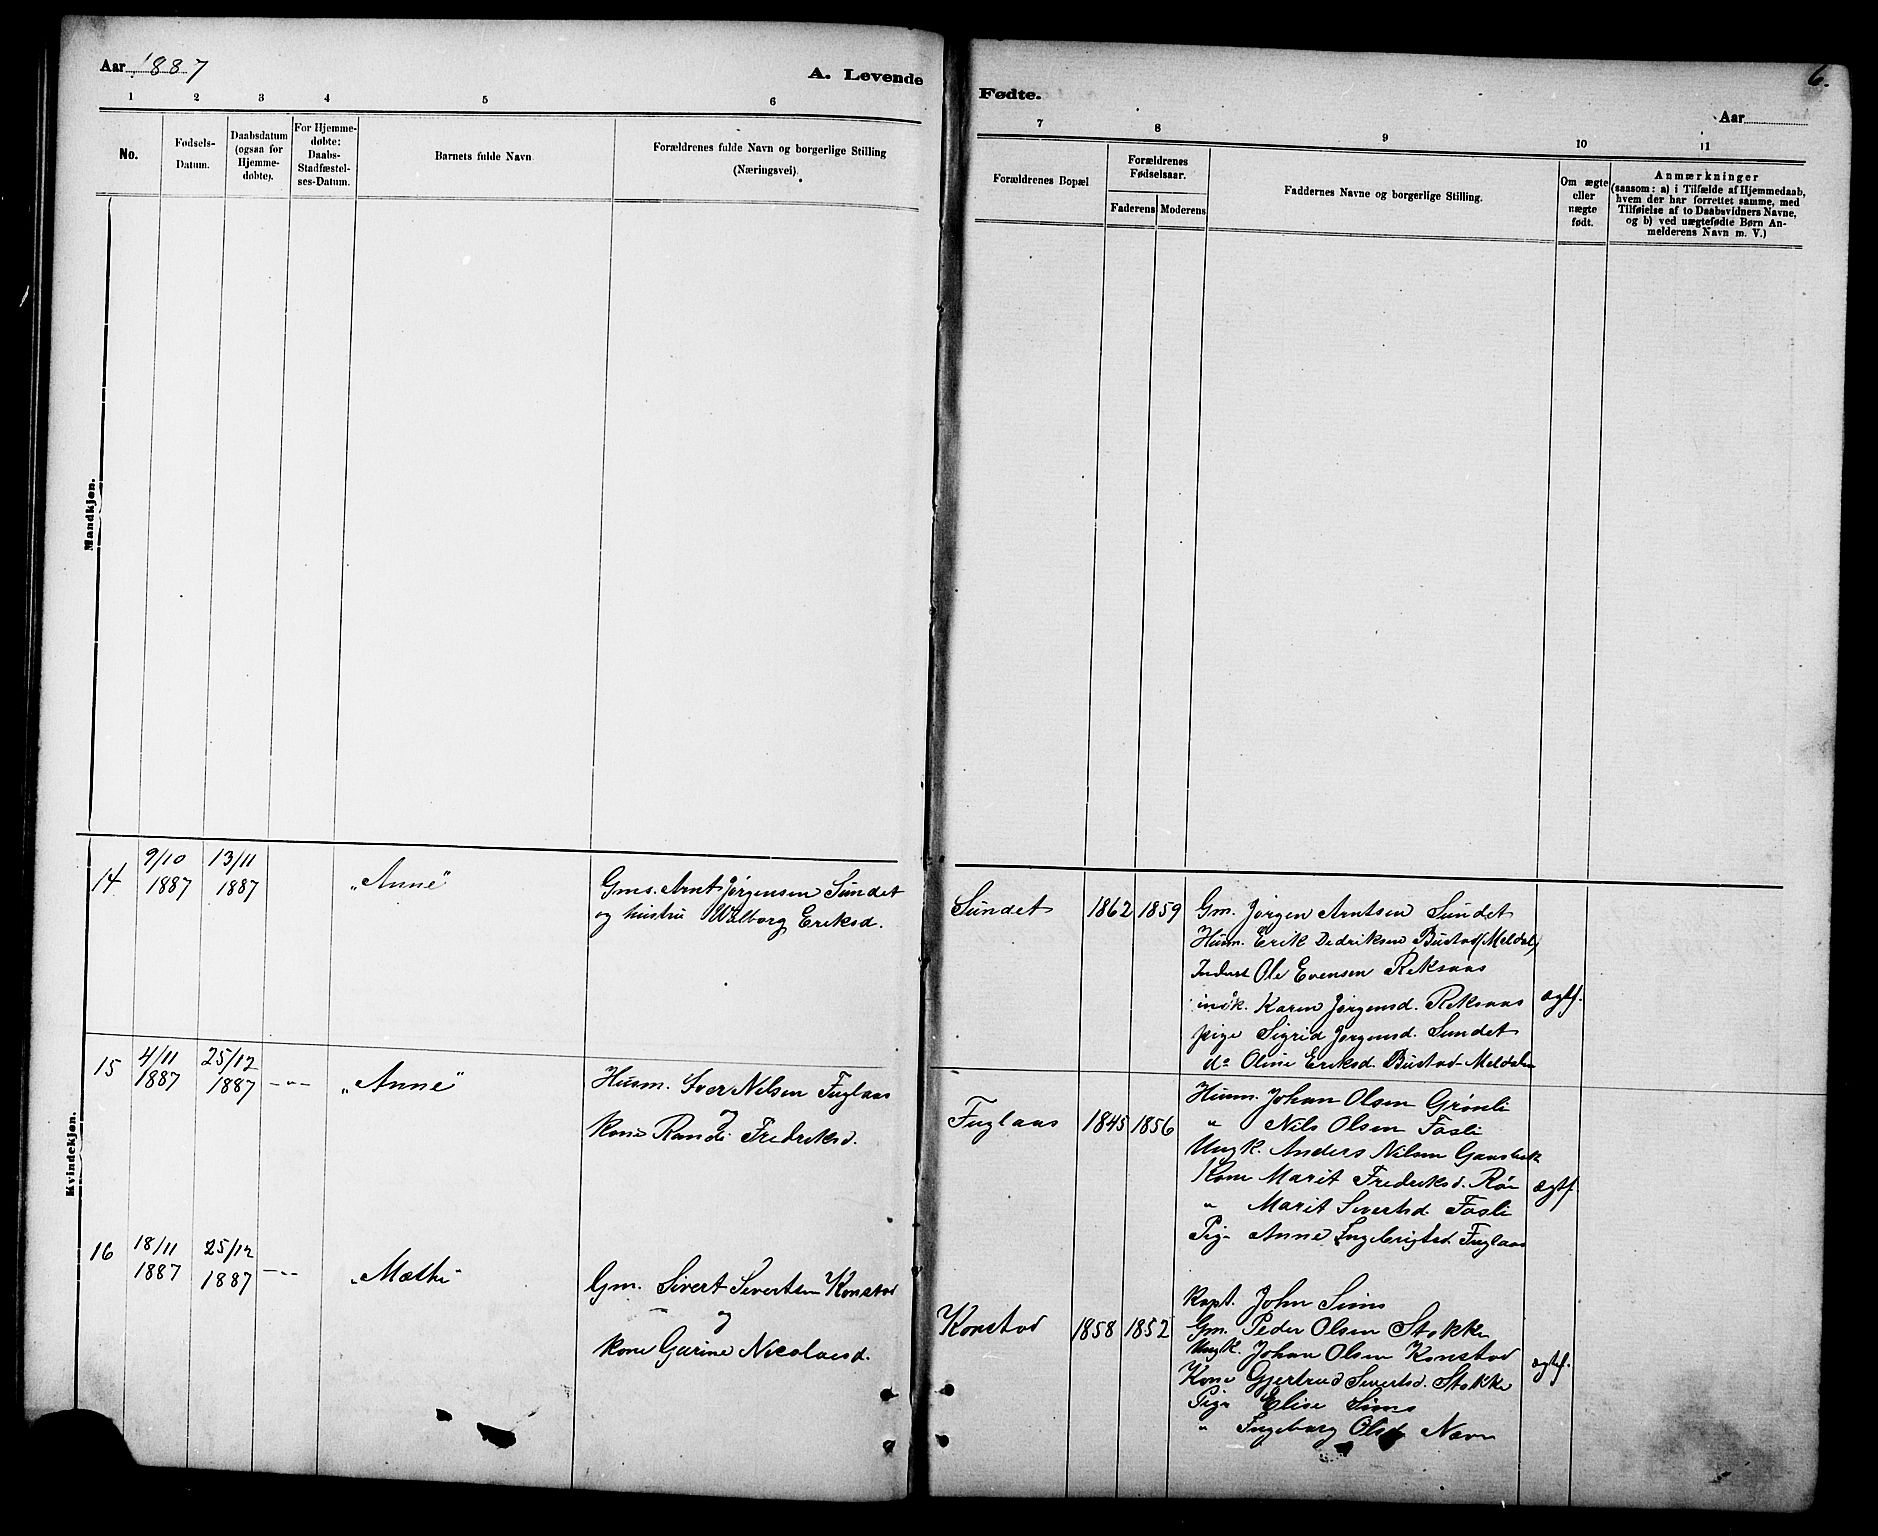 Aar 1887
A. Levende
Fødte.
6.
Aar
1 2 3 4 5 6
7 8 9 10 11
No.
Fødsels-
Datum.
Daabsdatum
(ogsaa for
Hjemme-
døbte).
For Hjemme-
døbte:
Daabs-
Stadfæstel-
ses-Datum.
Barnets fulde Navn
Forældrenes fulde Navn og borgerlige Stilling
(Næringsvei).
Forældrenes Bopæl
Forældrenes
Fødselsaar.
Faderens Moderens
Faddernes Navne og borgerlige Stilling.
Om ægte
eller
uægte
født.
Anmærkninger
(saasom: a) i Tilfælde af Hjemmedaab,
hvem der har forrettet samme, med
Tilføielse af to Daabsvidners Navne,
og b) ved uægtefødte Børn An-
melderens Navn m. V.)
Mandkjøn.
Kvindekjøn.
14
9/10
1887
13/11
1887
„Anne"
Gms. Arnt Jørgensen Sundet
og hustru Walborg Eriksd.
Sundet
1862 1859
Gm. Jørgen Arntsen Sundet
Husm. Erik Dedriksen Bustad (Meldal)
Inderst Ole Evensen Reksaas
Karen Jørgensd. Reksaas
pige Sigrid Jørgensd. Sundet
do Oline Eriksd. Bustad Meldalen
ægtf.
15
4/11
1887
25/12
1887
-"-
„Anne"
Husm. Iver Nilsen Fuglaas
og
kone Randi Fredriksd.
Fuglaas
1845 1856
Husm. Johan Olsen Grønli
" Nils Olsen Fosli
Ungk. Anders Nilsen
Kone Marit Fredriksd. Røe
" Marit Sivertsd. Fosli
Pige Anne Ingebrigtsd. Fuglaas
ægtf.
16
18/11
1887
25/12
1887
-"-
„Mæthe"
Gm. Sivert Sivertsen Konstad
og
kone Gurine Nicolaesd.
Konstad
1858 1852
Kapt. John Sims
Gm. Peder Olsen Stokke
Ungk. Johan Olsen Konstad
Kone Gjertrud Sivertsd. Stokke
Pige Elise Sims
" Ingeborg Olsd.
ægtf.